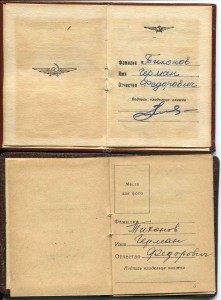 Фамилия Тихонов
Имя Герман
Отчество Федорович
Подпись владельца книжки
Место
для фото
Фамилия
Тихонов
Имя Герман
Отчество Федорович
Подпись владельца книжки